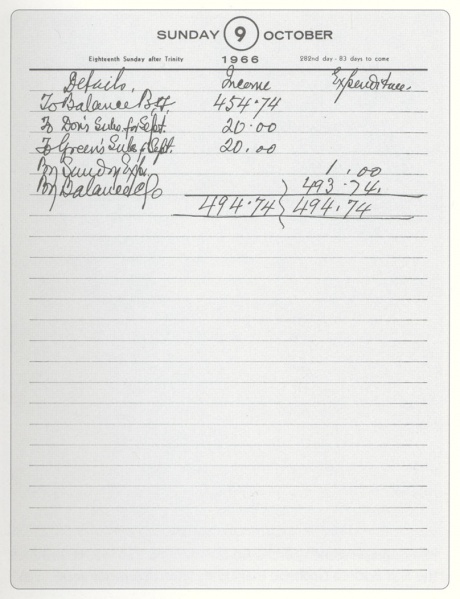 SUNDAY 9 OCTOBER
Eighteenth Sunday after Trinity 1966 282nd day - 83 days to come
Details. Income Expenditure.
To Balance B/f. 454.74
To Don's Subs. for Sept. 20.00
To Green's Subs. Sept. 20.00
By Sundry Exps. 1.00
By Balance c/o 493.74.
494.74 494.74